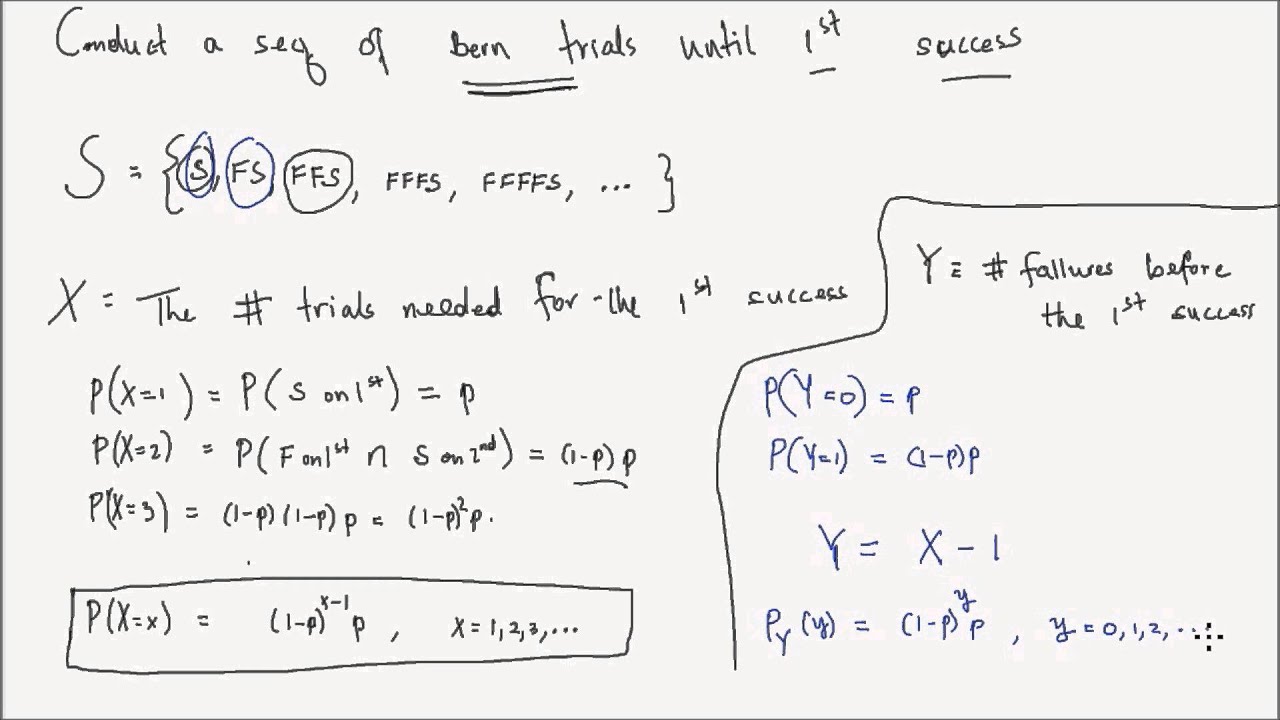 Conduct a seq of bern trials until 1st success
S = {S, FS, FFS, FFFS, FFFFS, ... }
X = The # trials needed for the 1st success
P(X=1) = P(S on 1st) = p
P(X=2) = P(F on 1st ∩ S on 2nd) = (1-p) p
P(X=3) = (1-p)(1-p) p = (1-p)²p.
P(X=x) = (1-p)^{x-1} p , x = 1, 2, 3, ...
Y = # failures before
the 1st success
P(Y=0) = p
P(Y=1) = (1-p)p
Y = X - 1
P_Y(y) = (1-p)^y p , y = 0, 1, 2, ...